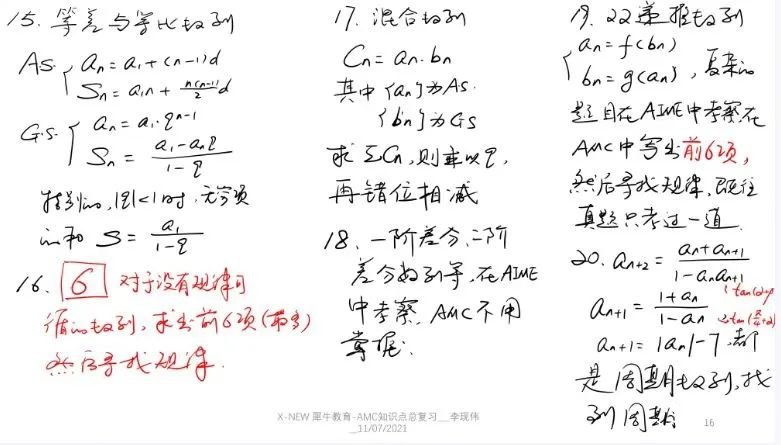 15. 等差与等比数列
AS. { an = a1 + (n-1)d
Sn = a1n + n(n-1)/2 d
G.S. { an = a1·q^(n-1)
Sn = (a1 - anq)/(1 - q)
特别的, |q|<1时, 无穷项
的和 S = a1/(1 - q)
16. 6 对于没有规律可
循的数列, 求出前6项(最多)
然后寻找规律.
17. 混合数列
Cn = an·bn
其中{an}为AS.
{bn}为GS
求ΣCn, 则乘以q,
再错位相减
18. 一阶差分, 二阶
差分数列等, 在AIME
中考察, AMC不用
掌握.
19. 双递推数列
{ an = f(bn)
bn = g(an) , 复杂的
题目在AIME中考察, 在
AMC中写出前6项,
然后寻找规律, 既往
真题只考过一道.
20. an+2 = (an + an+1)/(1 - an an+1)
an+1 = (1 + an)/(1 - an)
an+1 = |an| - 7, 都
是周期数列, 找
到周期
X-NEW 犀牛教育-AMC知识点总复习__李现伟
_11/07/2021
16